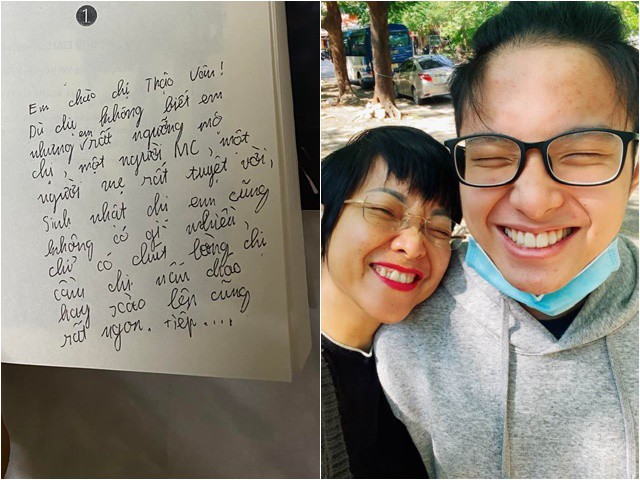 1
Em chào chị Thảo Vân!
Dù chị không biết em
nhưng em rất ngưỡng mộ
chị, một người MC, một
người mẹ rất tuyệt vời,
Sinh nhật chị em cũng
không có gì nhiều,
chỉ có chút lòng, chị
cầm chị nấu cháo
hay xào lên cũng
rất ngon. Tiếp....